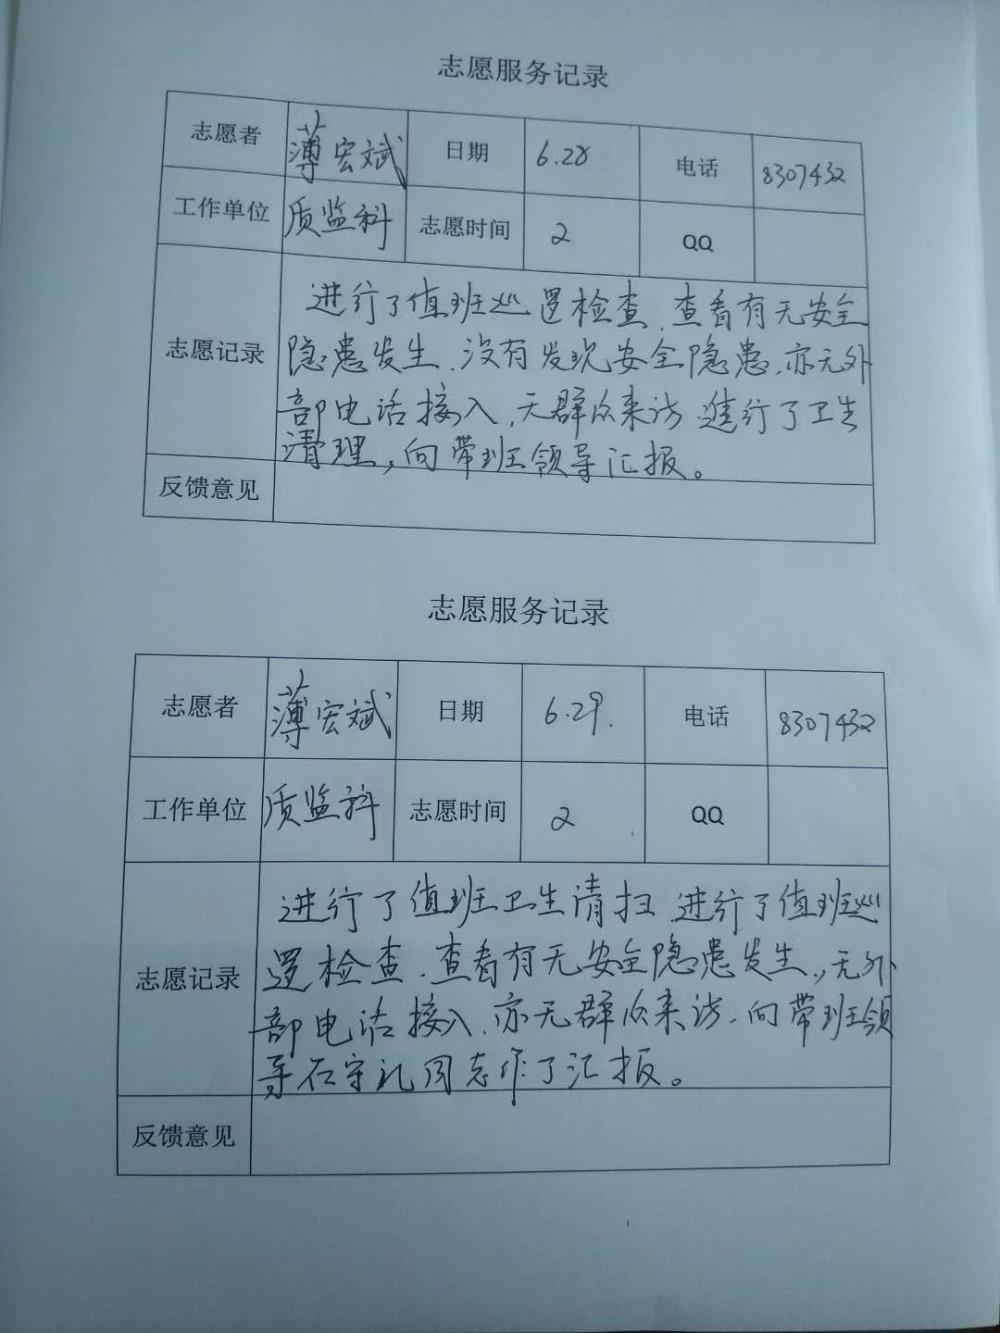 志愿服务记录
志愿者 薄宏斌 日期 6.28 电话 8307432
工作单位 质监科 志愿时间 2 QQ
志愿记录
进行了值班巡逻检查、查看有无安全
隐患发生、没有发现安全隐患、亦无外
部电话接入、无群众来访 进行了卫生
清理，向带班领导汇报。
反馈意见
志愿服务记录
志愿者 薄宏斌 日期 6.29. 电话 8307432
工作单位 质监科 志愿时间 2 QQ
志愿记录
进行了值班卫生清扫 进行了值班巡
逻检查、查看有无安全隐患发生，无外
部电话接入、亦无群众来访、向带班领
导石守礼同志作了汇报。
反馈意见